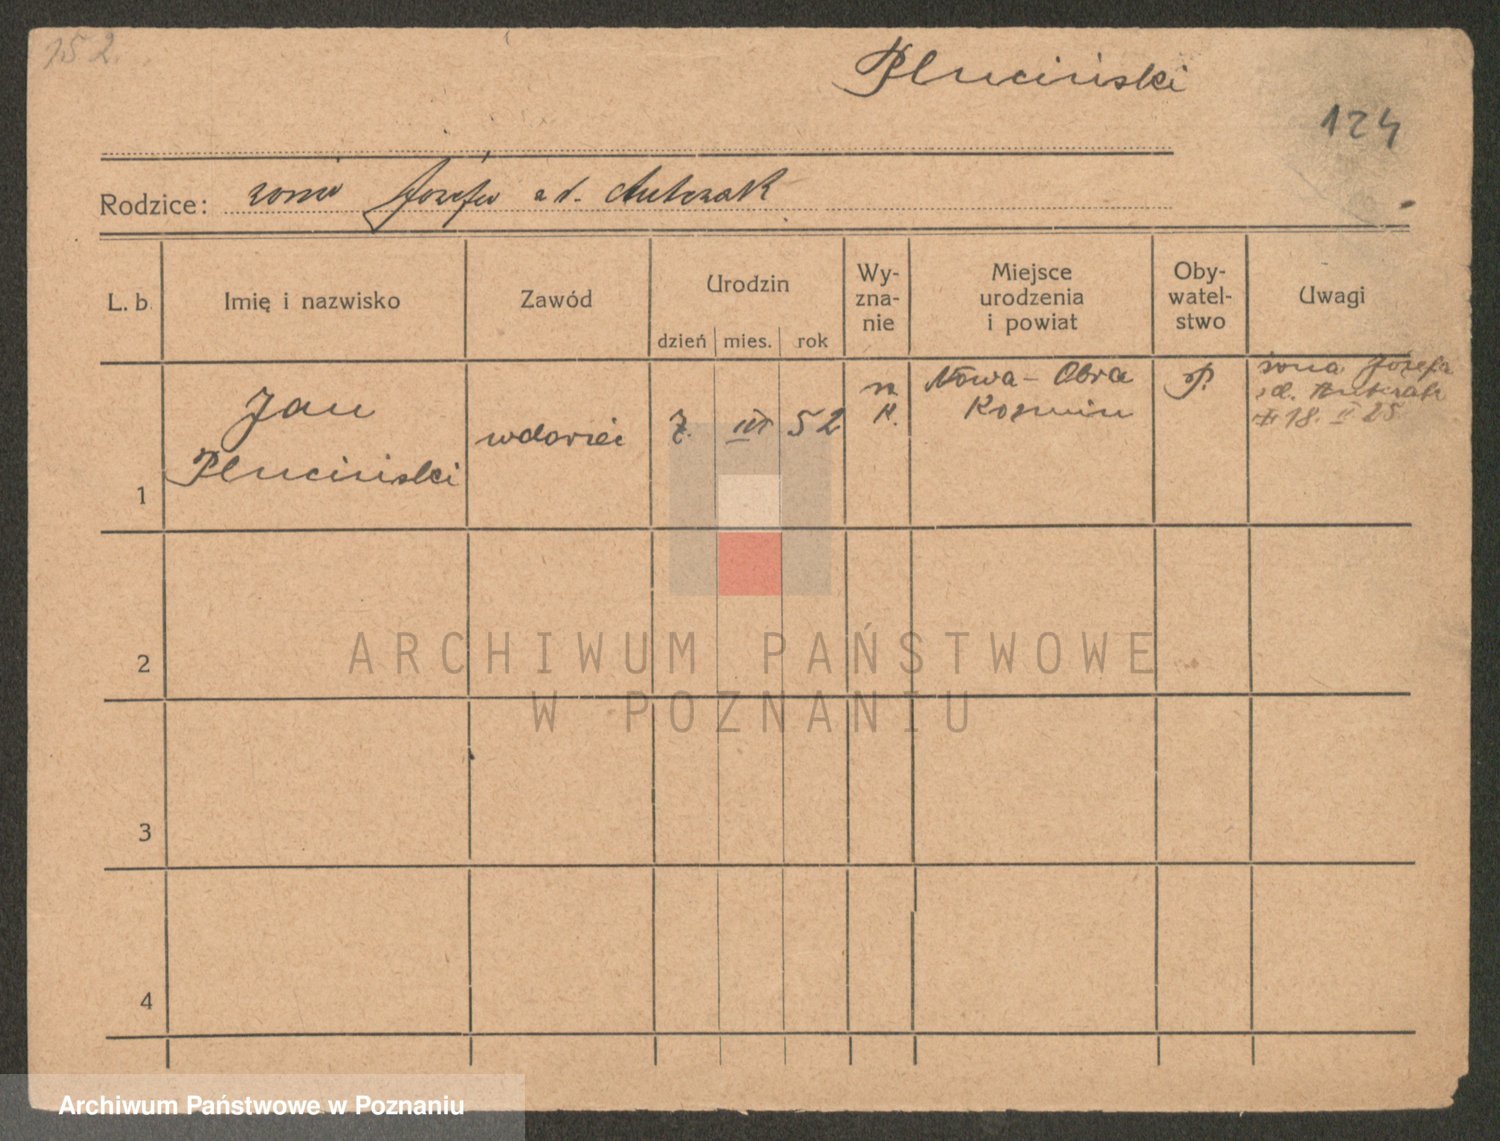 152.
Pluciński
124
Rodzice: żona Józefa z d. Antczak
L. b. Imię i nazwisko Zawód Urodzin dzień mies. rok Wy-zna-nie Miejsce urodzenia i powiat Oby-watel-stwo Uwagi
Jan
Pluciński
wdowiec
7. III 52
Nowa-Obra
Kozmin
P.
żona Józefa
z d. Antczak
18. II 25
1
2
3
4
ARCHIWUM PAŃSTWOWE
W POZNANIU
Archiwum Państwowe w Poznaniu